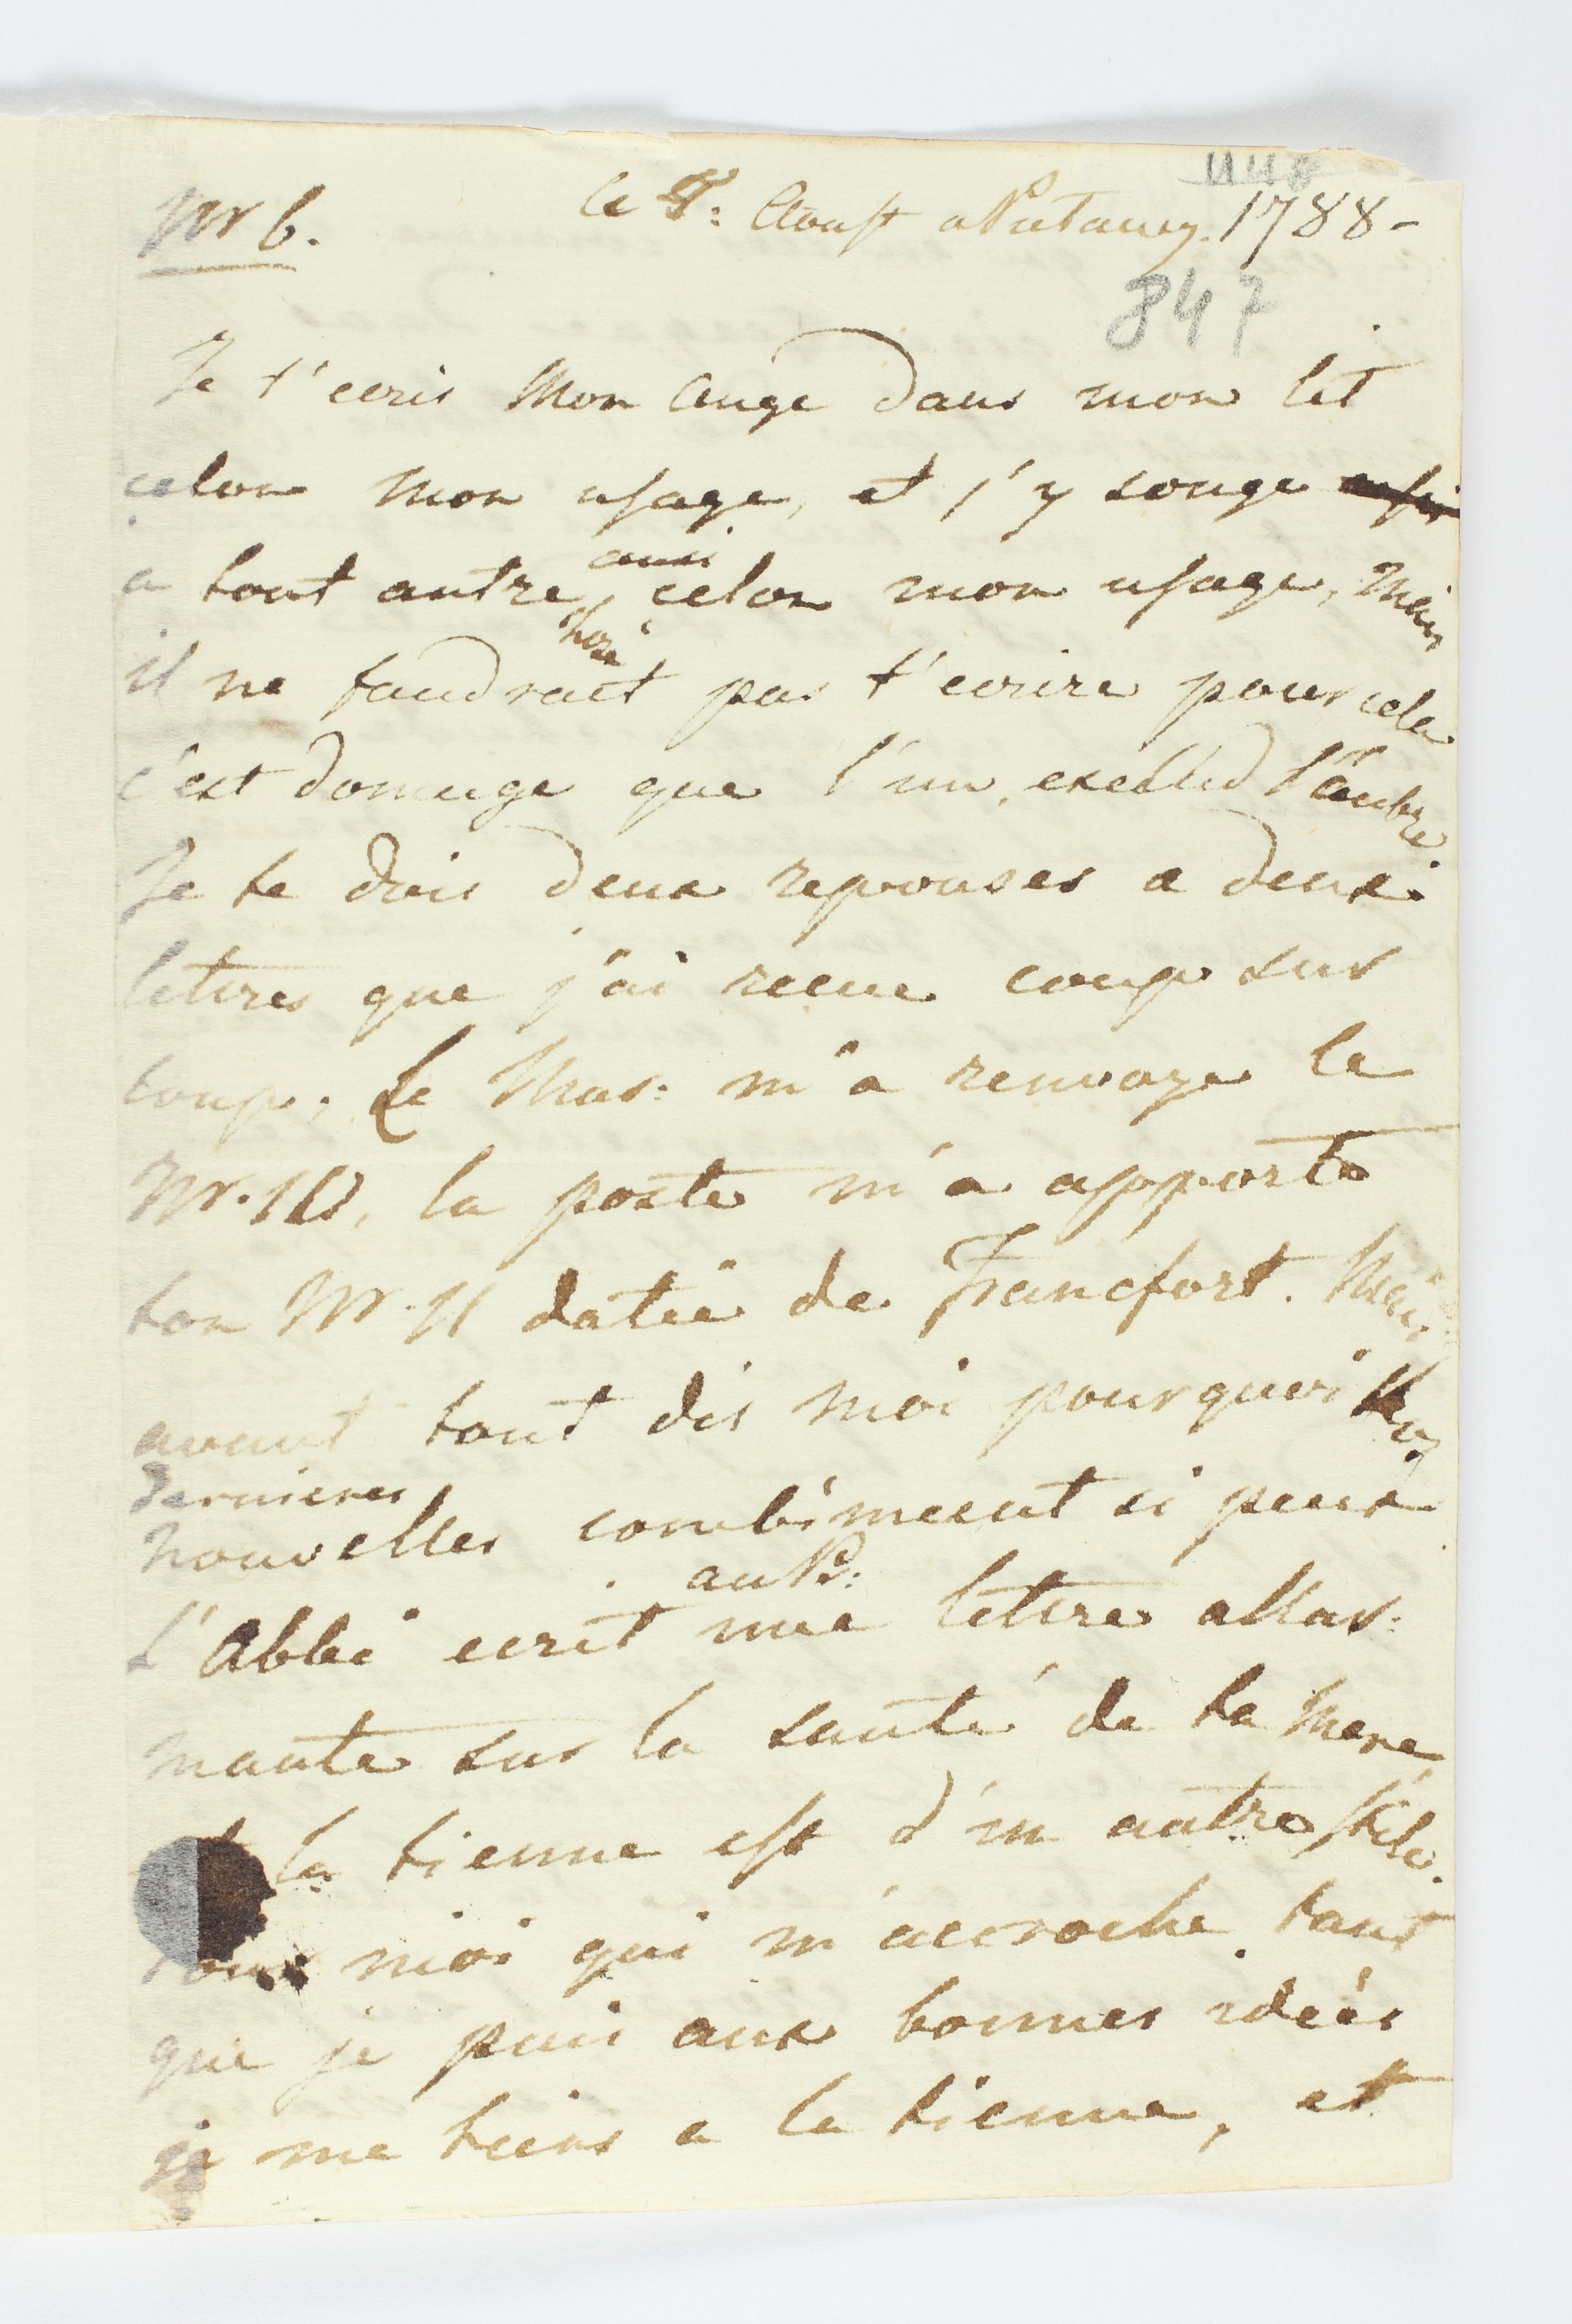 Nr 6.
le 8: Aoust a Putaux. 1788-
847
Je t'ecris Mon Ange dans mon lit
celon mon usage, et j'y songe
a tout autre chose aussi celon mon usage, Mais
il ne faudrait pas t'ecrire pour cela
c'est domage que l'un exclud l'autre.
Je te dois deux reponses a deux
lettres que j'ai recue coup sur
coup, Le Mar: m'a renvoye le
Nr. 10, la poste m'a apporte
ton Nr. 11 datée de Francfort. Mais
avant tout dis moi pourquoi vos
dernieres
nouvelles combiment si peux
L'Abbé ecrit au Pr: une lettre allar:
mante sur la santé de ta Mere
et la tienne est d'un autre stile.
Pour moi qui m'accroche tant
que je puis aux bonnes ideés
je me tiens a la tienne, et